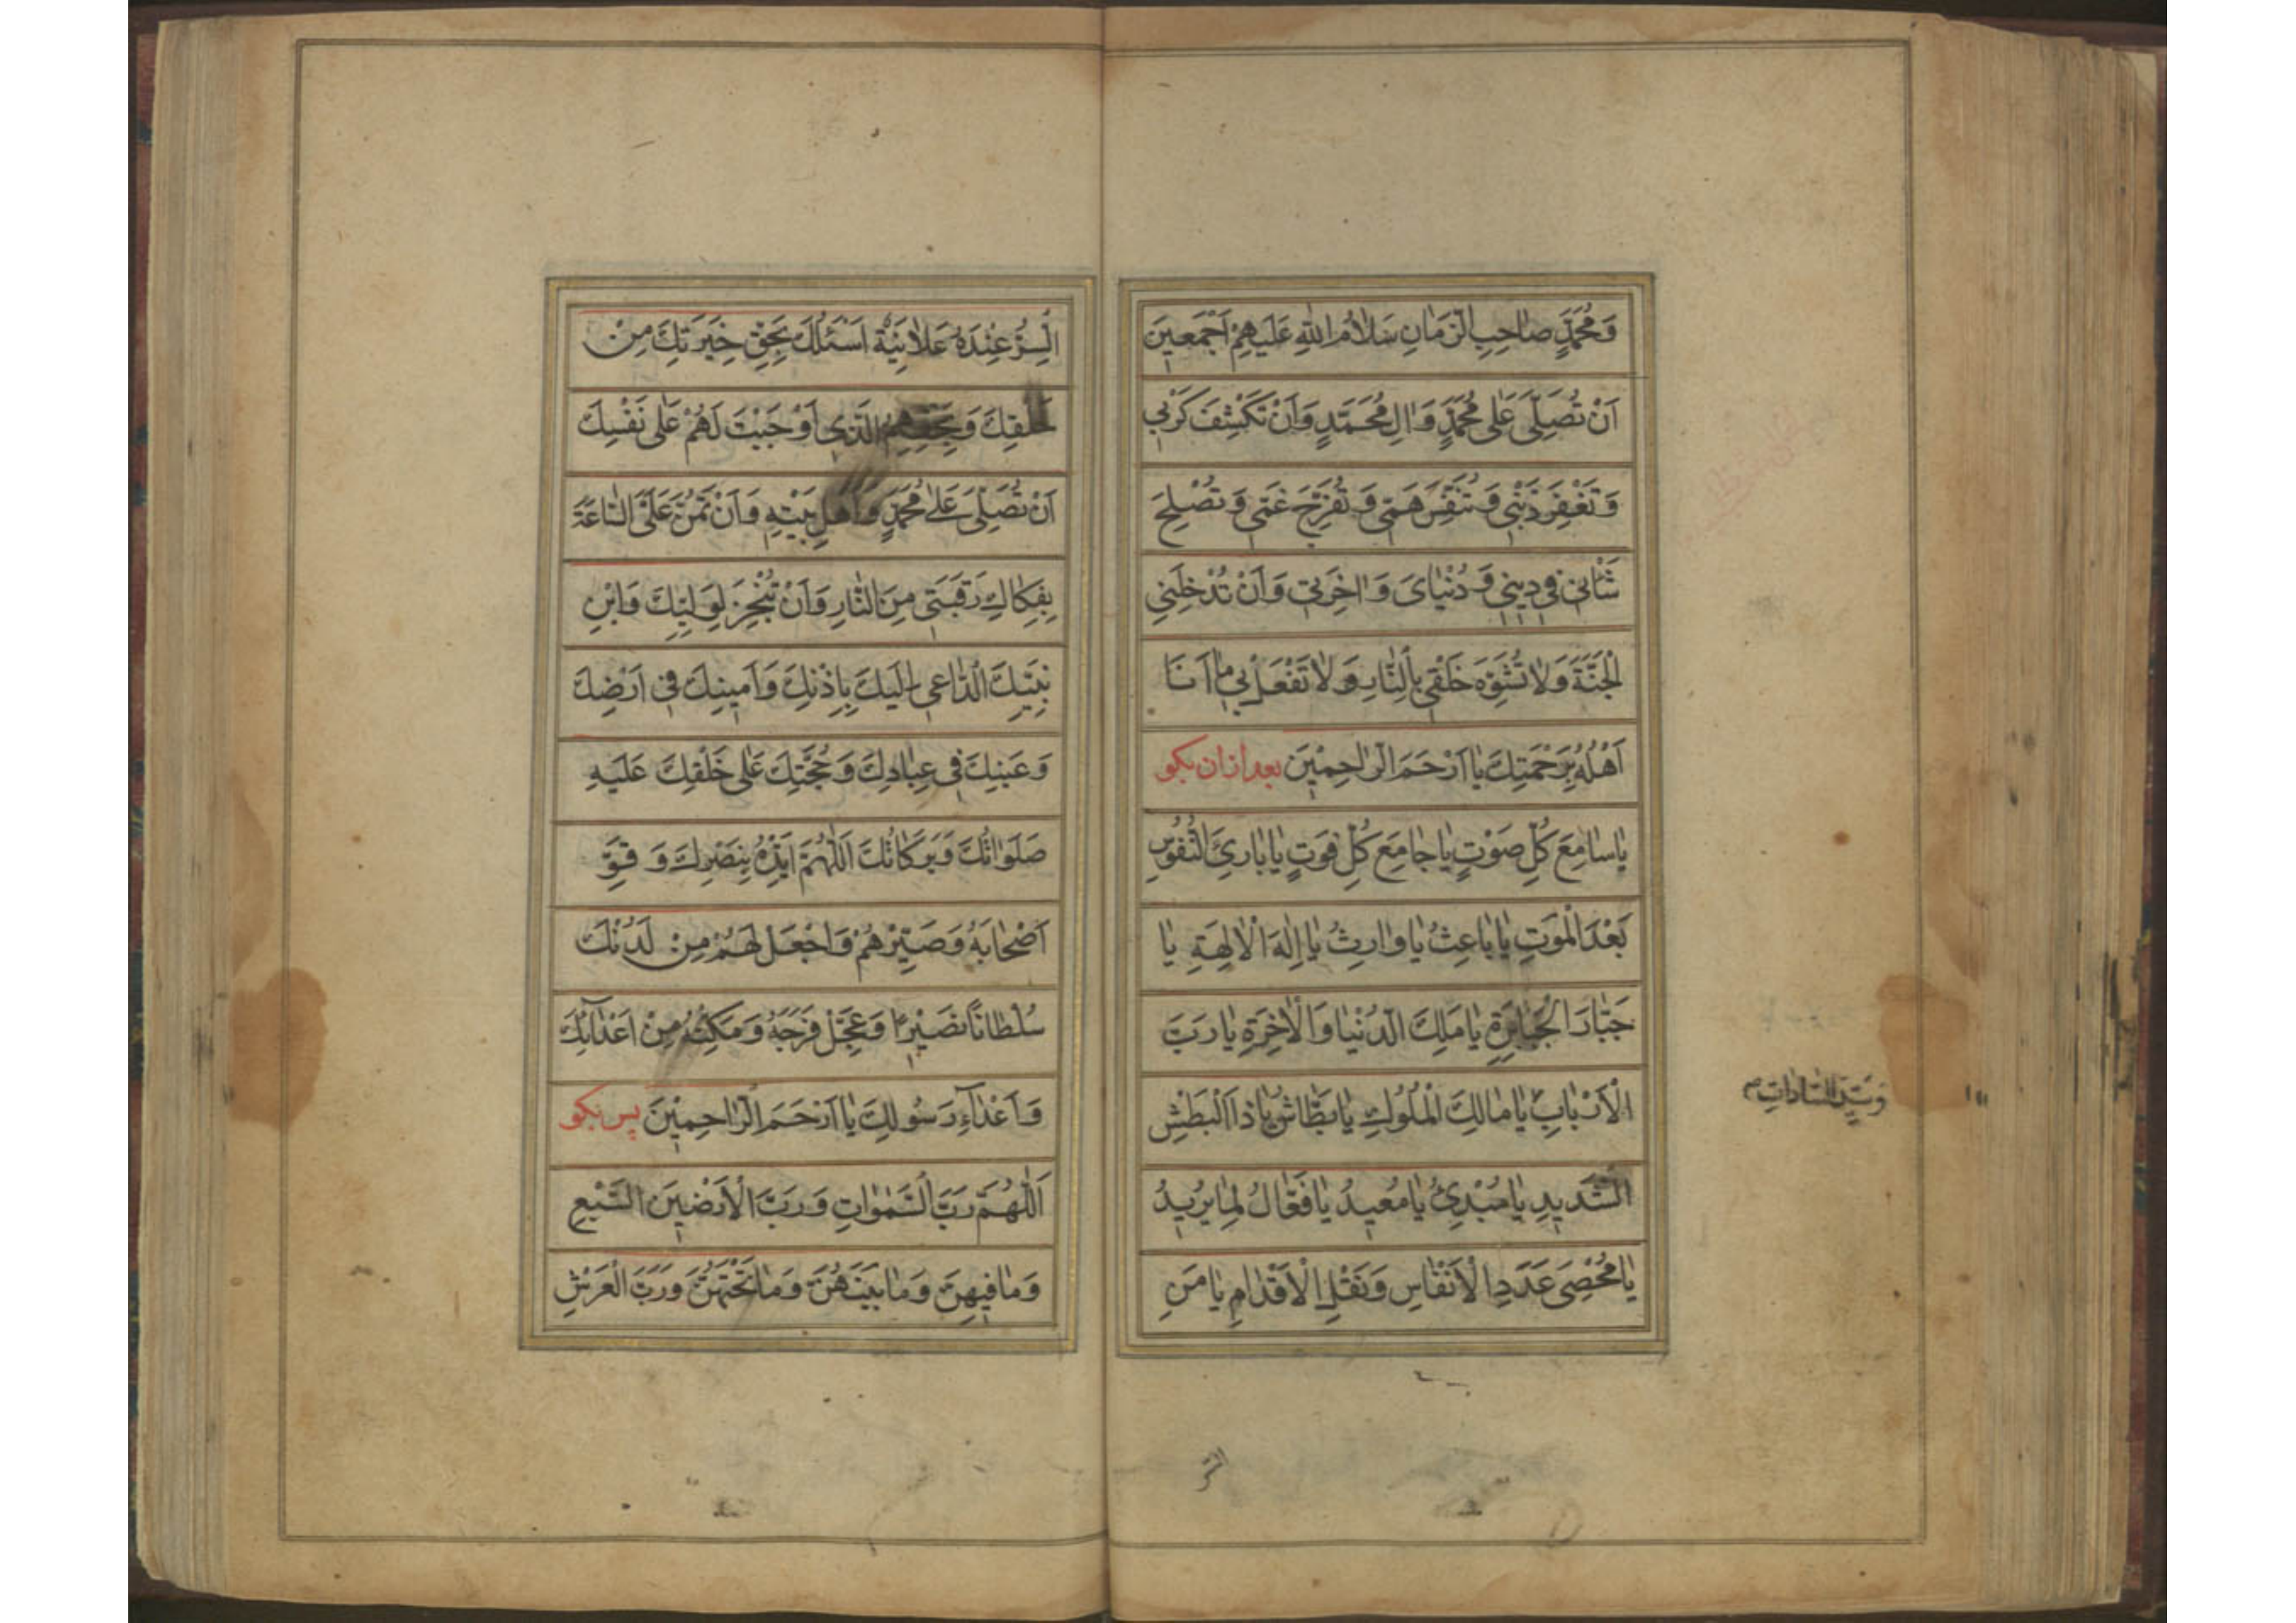 وَمُحَمَّدٍ صاحِبِ الزَّمانِ سَلامُ اللهِ عَلَيْهِمْ اَجْمَعينَ
اَنْ تُصَلِّىَ عَلى مُحَمَّدٍ وَالِ مُحَمَّدٍ وَاَنْ تَكْشِفَ كَرْبي
وَتَغْفِرَ ذَنْبي وَتُنَفِّسَ هَمّي وَتُفَرِّجَ غَمّي وَتُصْلِحَ
شَأْني في ديني وَدُنْياىَ وَاخِرَتي وَاَنْ تُدْخِلَني
الْجَنَّةَ وَلا تُشَوِّهَ خَلْقي بِالنّارِ وَلا تَفْعَلْ بي ما اَنَا
اَهْلُهُ بِرَحْمَتِكَ يا اَرْحَمَ الرّاحِمْينَ بعد از ان بكو
يا سامِعَ كُلِّ صَوْتٍ يا جامِعَ كُلِّ فَوتٍ يا بارِئَ النُّفُوُسِ
بَعْدَ الْمَوتِ يا باعِثُ يا وارِثُ يا اِلهَ الْالِهَةِ يا
جَبّارَ الْجَبابِرَةِ يا مَلِكَ الدُّنْيا وَالْاخِرَةِ يا رَبَّ
الْاَرْبابِ يا مالِكَ الْمُلُوكِ يا بَطّاشُ يا ذَا الْبَطْشِ
الشَّديدِ يا مُبْدِئُ يا مُعيدُ يا فَعّالُ لِما يُريدُ
يا مُحْصِىَ عَدَدِ الْاَنْفاسِ وَنَقْلِ الْاَقْدامِ يا مَنِ
وَسَيِّدَ السّاداتِ
السِّرُّ
السِّرُّ عِنْدَهُ عَلانِيَةٌ اَسْئَلُكَ بِحَقِّ خِيَرَتِكَ مِنْ
خَلْقِكَ وَبِحَقِّهِمُ الَّذي اَوْجَبْتَ لَهُمْ عَلى نَفْسِكَ
اَنْ تُصَلِّىَ عَلى مُحَمَّدٍ وَاَهْلِ بَيْتِهِ وَاَنْ تَمُنَّ عَلَىَّ السّاعَةَ
بِفِكاكِ رَقَبَتي مِنَ النّارِ وَاَنْ تُنْجِزَ لِوَلِيِّكَ وَابْنِ
نَبِيِّكَ الدّاعي اِلَيكَ بِاِذْنِكَ وَاَمينِكَ في اَرْضِكَ
وَعَينِكَ في عِبادِكَ وَحُجَّتِكَ عَلى خَلْقِكَ عَلَيهِ
صَلَواتُكَ وَبَرَكاتُكَ اَللّهُمَّ اَيِّدْهُ بِنَصْرِكَ وَقَوِّ
اَصْحابَهُ وَصَبِّرْهُمْ وَاجْعَلْ لَهُمْ مِنْ لَدُنْكَ
سُلْطانًا نَصْيرًا وَعَجِّلْ فَرَجَهُ وَمَكِّنْهُ مِنْ اَعْدائِكَ
وَاَعْداءِ رَسُولِكَ يا اَرْحَمَ الرّاحِمْينَ پس بكو
اَللّهُمَّ رَبَّ السَّمواتِ وَرَبَّ الْاَرَضْينَ السَّبْعِ
وَما فيهِنَّ وَما بَيْنَهُنَّ وَما تَحْتَهُنَّ وَرَبَّ الْعَرْشِ